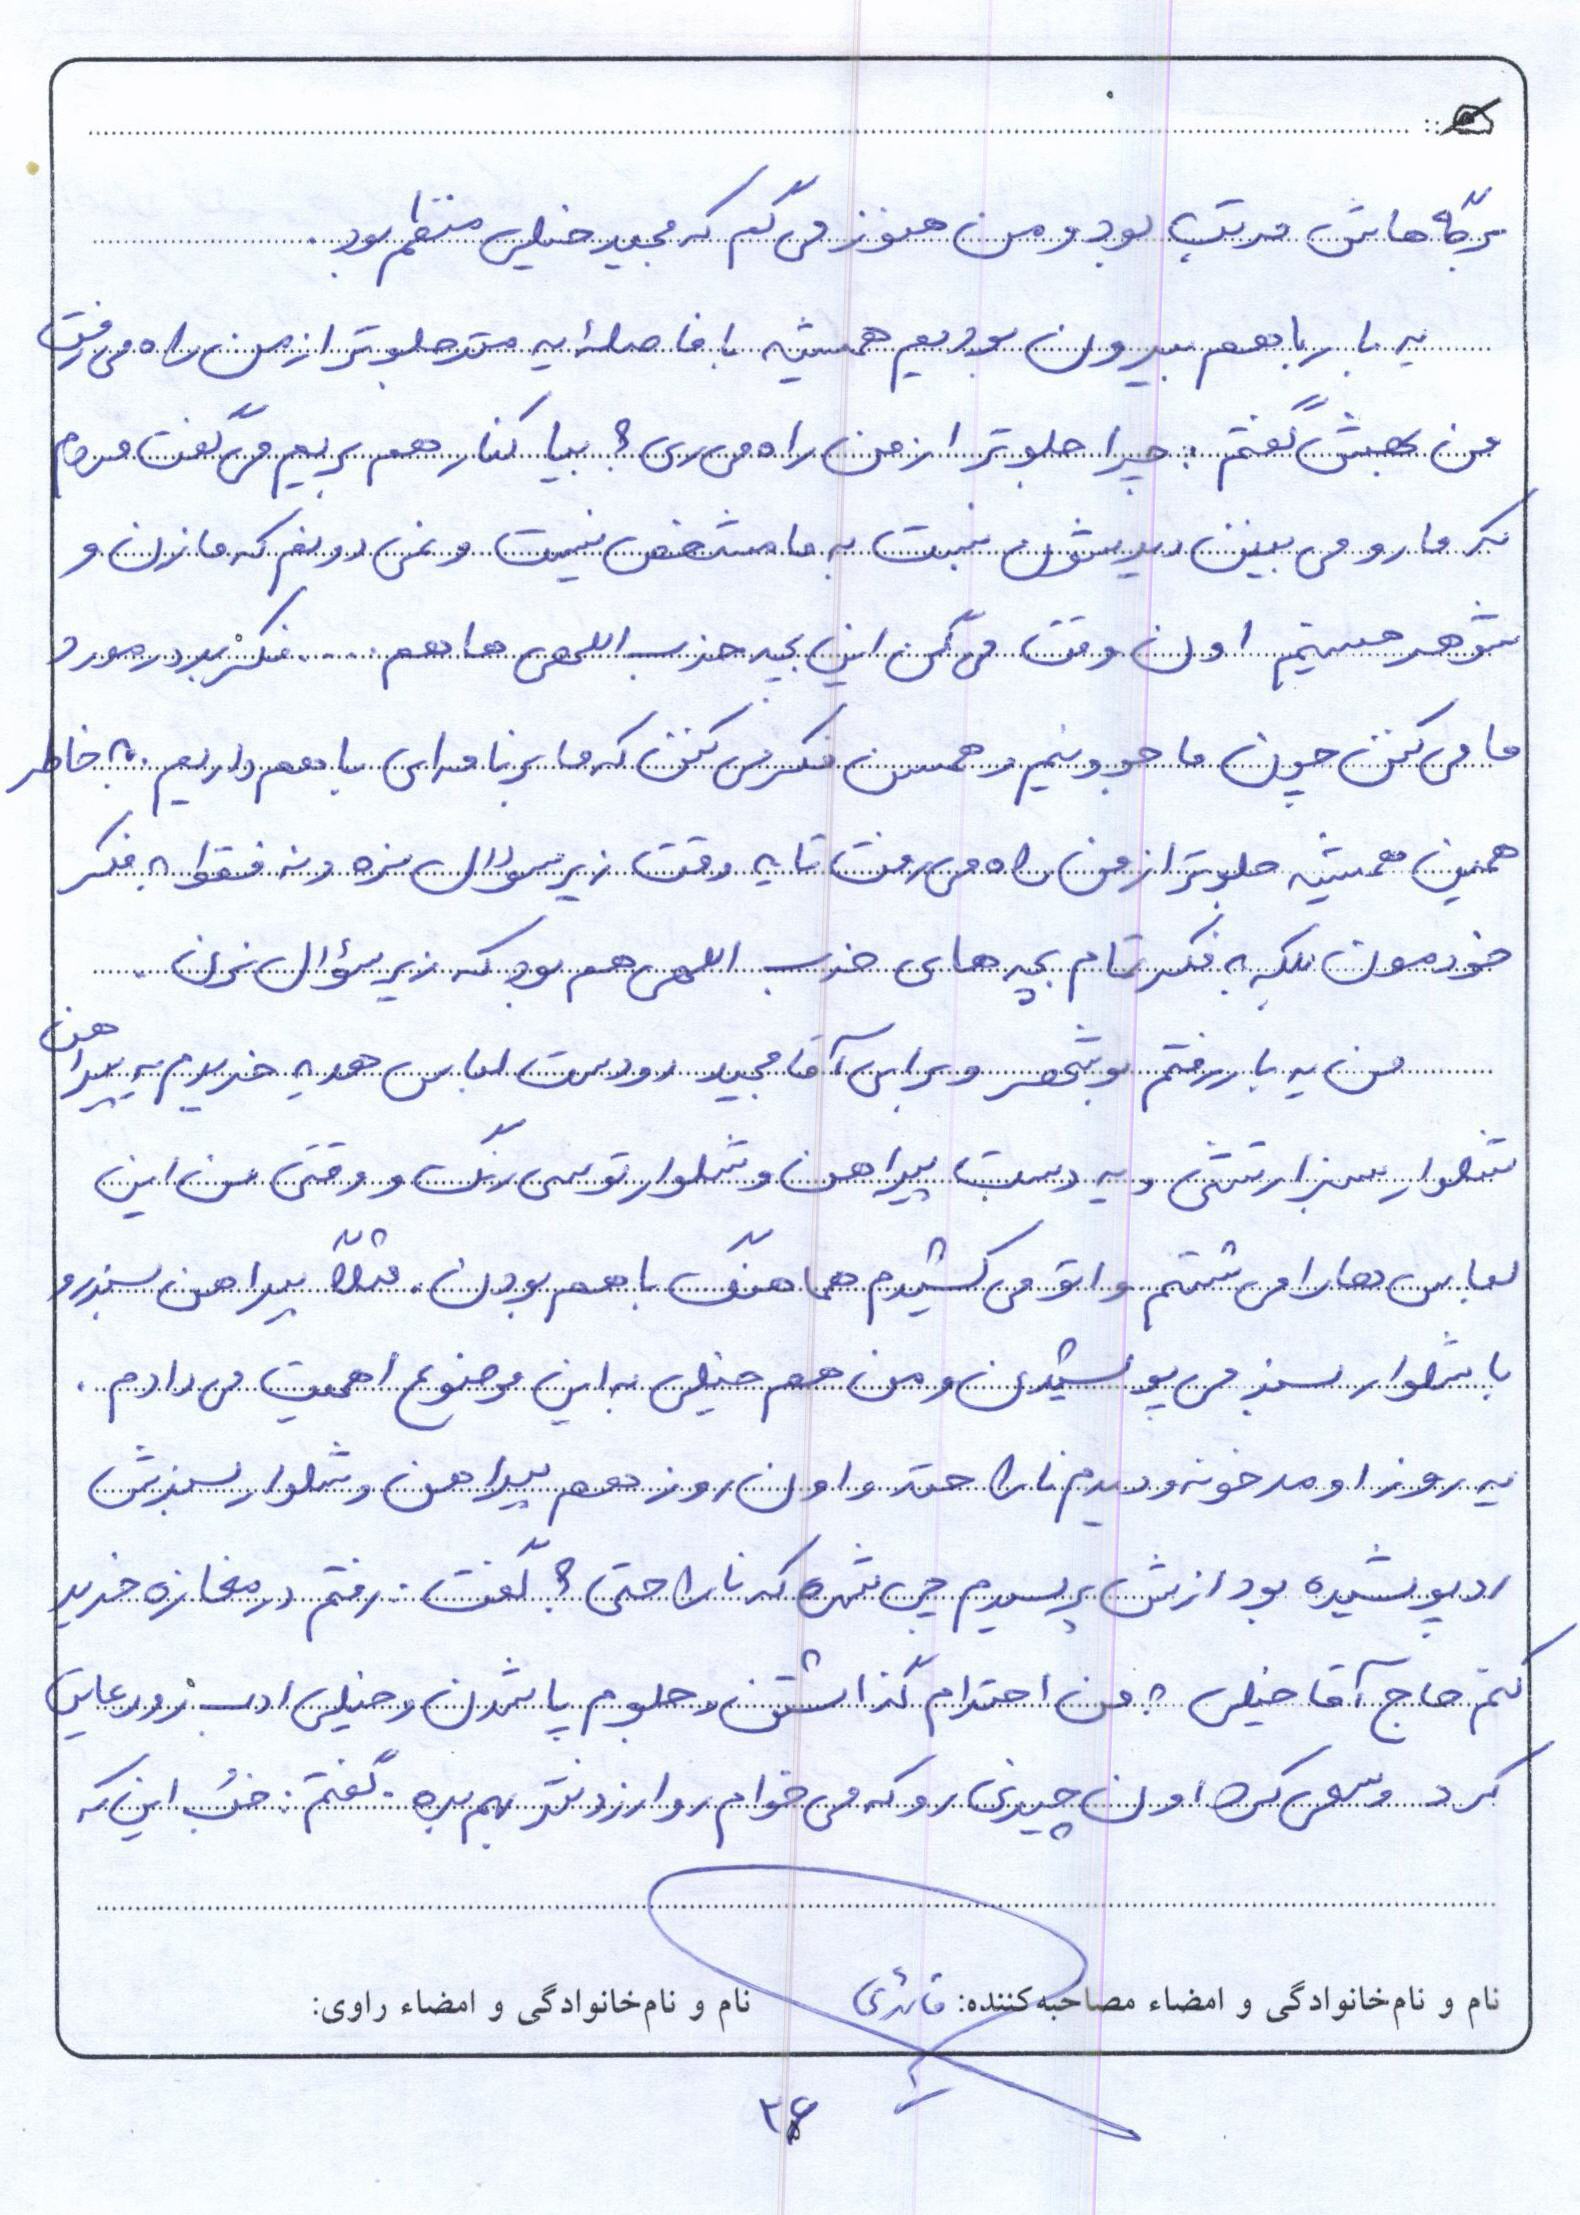 برگه هاش مرتب بود و من هنوز می گم که مجید خیلی منظم بود.
یه بار با هم بیرون بودیم همیشه با فاصلهٔ یه متر جلوتر از من راه می رفت
من بهش گفتم: چرا جلوتر از من راه می ری؟ بیا کنار هم بریم می گفت مردم
که ما رو می بینن دیدشون نسبت به ما مشخص نیست و نمی دونن که ما زن و
شوهر هستیم اون وقت می گن این بچه حزب اللهی ها هم .... فکر بد در مورد
ما می کنن چون ما جوونیم و همسن فکر می کنن که ما برنامه ای با هم داریم. به خاطر
همین همیشه جلوتر از من راه می رفت تا یه وقت زیر سؤال نره و نه فقط به فکر
خودمون بلکه به فکر تمام بچه های حزب اللهی هم بود که زیر سؤال نرن.
من یه بار رفتم بوشهر و برای آقا مجید دو دست لباس هدیه خریدم یه پیراهن
شلوار سبز ارتشی و یه دست پیراهن و شلوار توسی رنگ و وقتی من این
لباس ها را می شستم و اتو می کشیدم هماهنگ با هم بودن. مثلاً پیراهن سبز رو
با شلوار سبز می پوشیدن و من هم خیلی به این موضوع اهمیت می دادم.
یه روز اومد خونه و دیدم ناراحته و اون روز هم پیراهن و شلوار سبزش
رو پوشیده بود ازش پرسیدم چی شده که ناراحتی؟ گفت: رفتم در مغازه خرید
کنم حاج آقا خیلی به من احترام گذاشتن و جلوم پا شدن و خیلی ادب رو رعایت
کرد و سعی کرد اون چیزی رو که می خوام رو ارزونتر بهم بده. گفتم: خُب این که
نام و نام خانوادگی و امضاء مصاحبه کننده: قائدی
نام و نام خانوادگی و امضاء راوی: